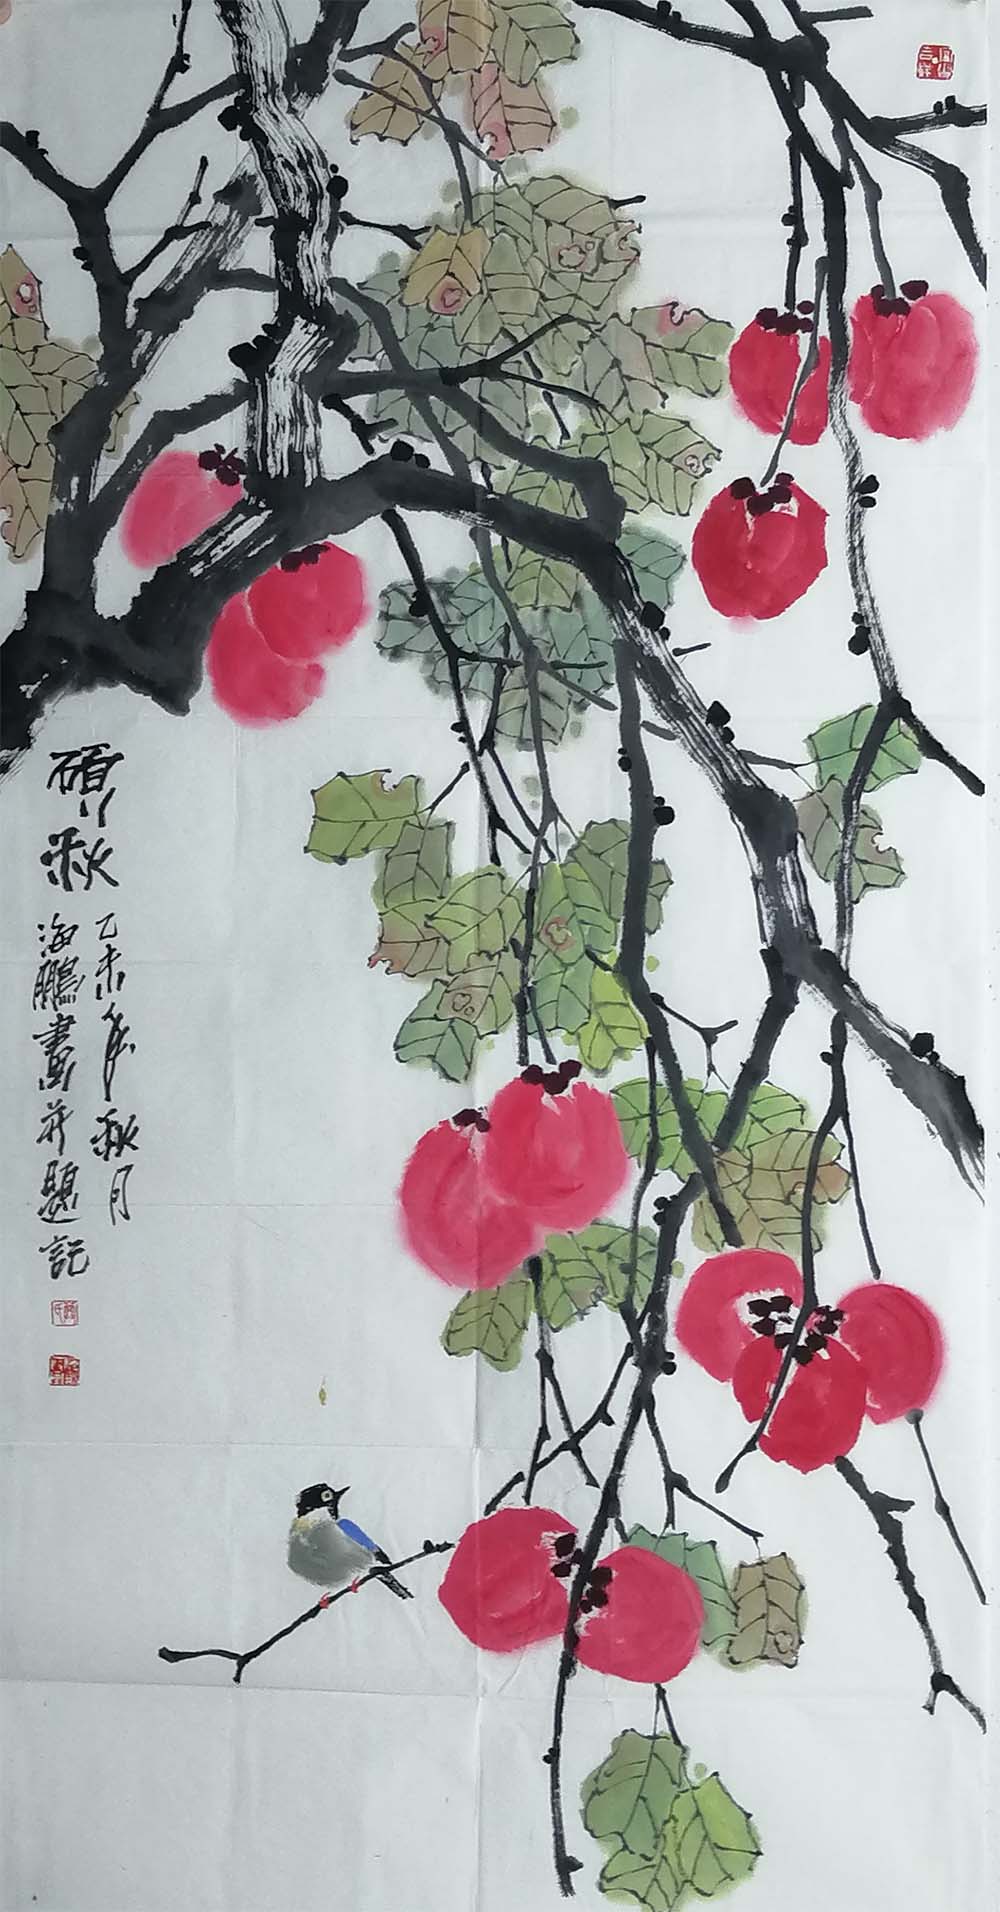 碩秋
乙未年秋月
海鵬畫并題記